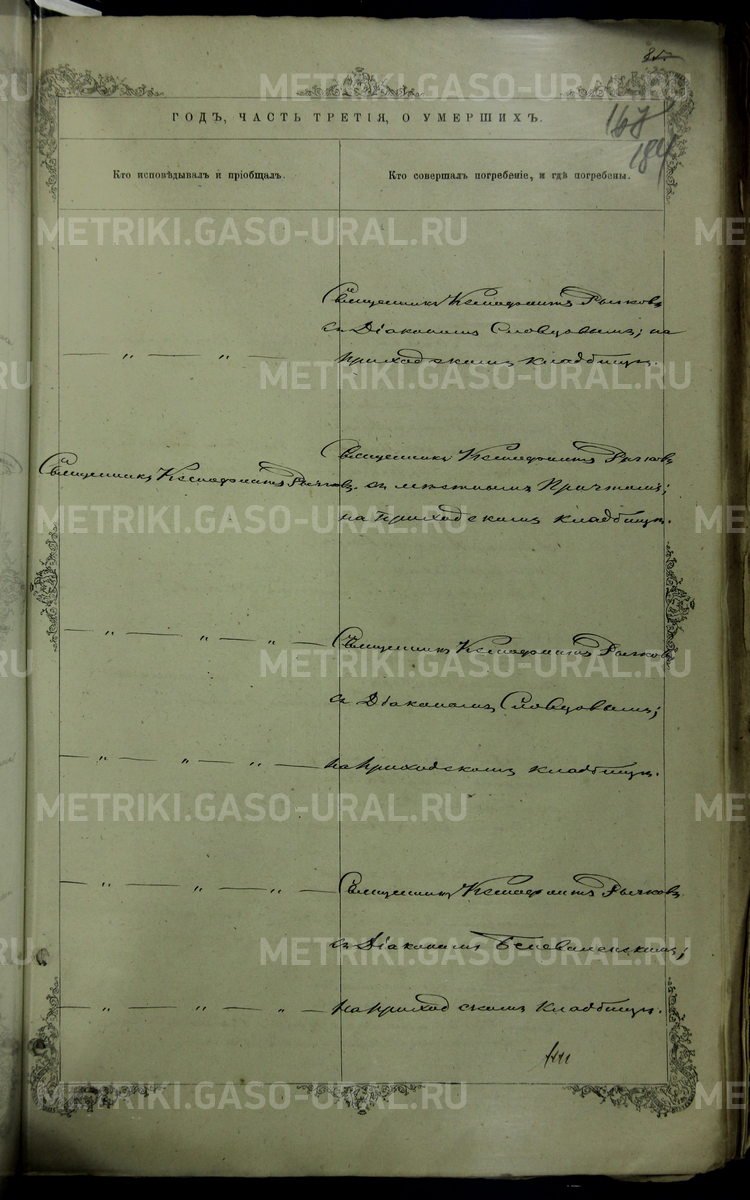 85
167
184
ГОДЪ, ЧАСТЬ ТРЕТІЯ, О УМЕРШИХЪ.
Кто исповѣдывалъ и пріобщалъ.
Кто совершалъ погребеніе, и гдѣ погребены.
Священникъ Ксенофонтъ Рычковъ
съ Діакономъ Словцовымъ; на
— „ — „ —
приходскомъ кладбищѣ.
Священникъ Ксенофонтъ Рычковъ.
Священникъ Ксенофонтъ Рычковъ
съ мѣстнымъ Причтомъ;
на приходскомъ кладбищѣ.
— „ — „ — „ —
Священникъ Ксенофонтъ Рычковъ
съ Діакономъ Словцовымъ;
— „ — „ — „ —
на приходскомъ кладбищѣ.
— „ — „ — „ —
Священникъ Ксенофонтъ Рычковъ
съ Діакономъ
— „ — „ — „ —
на приходскомъ кладбищѣ.
METRIKI.GASO-URAL.RU